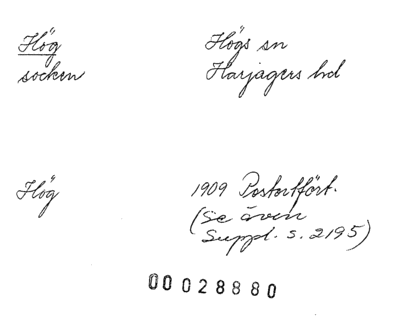 Hög
socken
Högs sn
Harjagers hd
Hög
1909 Postortfört.
(Se även
Suppl. s. 2195)
00 028880